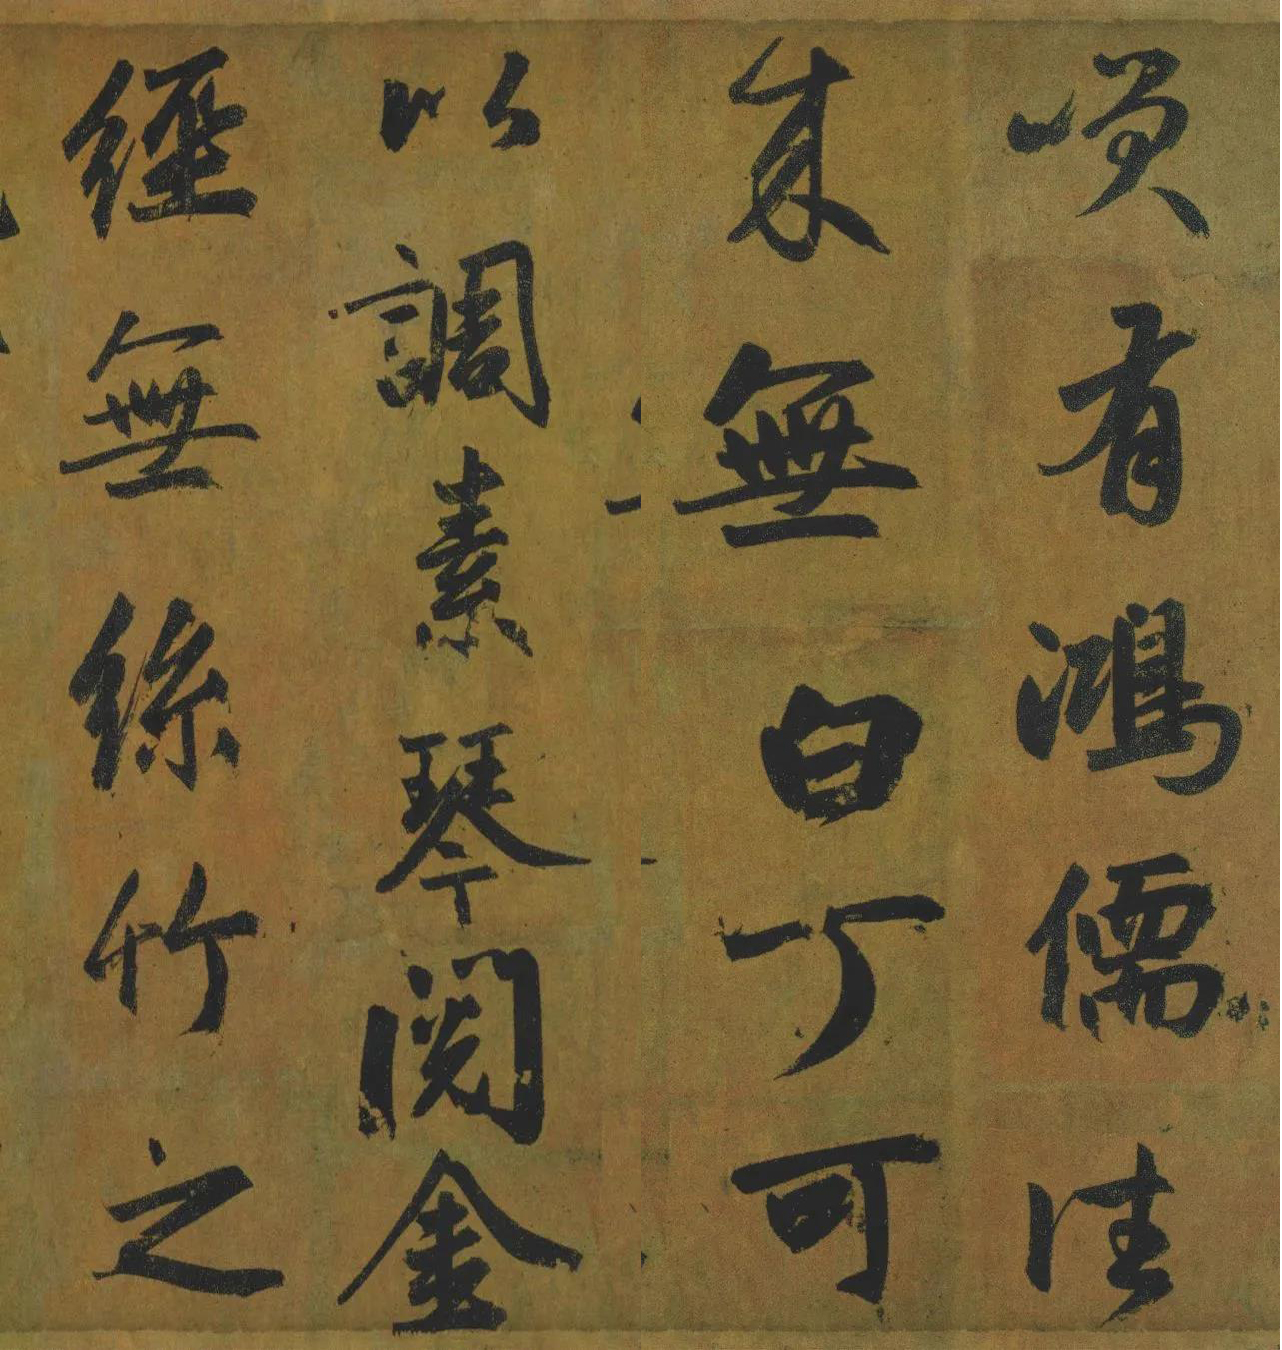 咲有鴻儒往
来無白丁可
以調素琴閱金
經無絲竹之